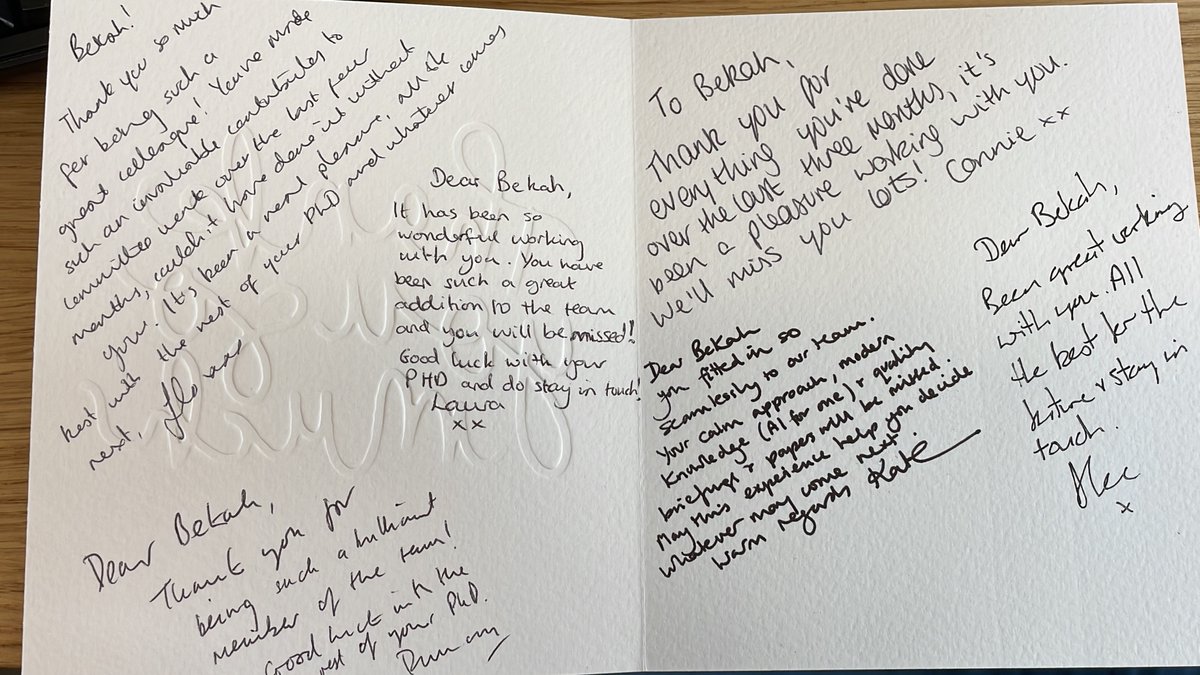 Bekah!
Thank you so much
for being such a
great colleague! You've made
such an invaluable contributes to
committee work over the last few
months, couldn't have done it without
you. It's been a real pleasure, all the
best with the rest of your PhD and whatever comes
next, Flo
Dear Bekah,
It has been so
wonderful working
with you. You have
been such a great
addition to the team
and you will be missed!!
Good luck with your
PHD and do stay in touch!
Laura
x x
Dear Bekah,
Thank you for
being such a brilliant
member of the team!
Good luck with the
rest of your PhD.
To Bekah,
Thank you for
everything you've done
over the last three months, it's
been a pleasure working with you.
We'll miss you lots! Connie xx
Dear Bekah,
Been great working
with you. All
the best for the
future & stay in
touch.
Alec
x
Dear Bekah
you fitted in so
seamlessly to our team.
Your calm approach, modern
knowledge (AI for one) & quality
briefings & papers will be missed.
May this experience help you decide
whatever may come next.
Warm regards Kate